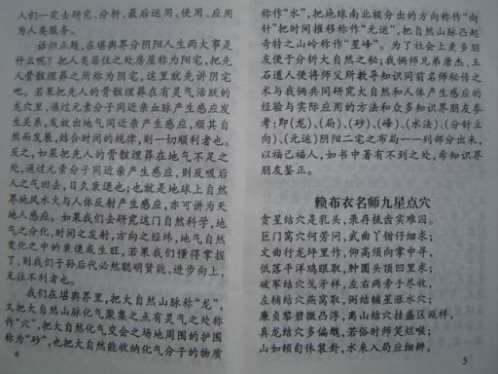 人们一定去研究、分析、最后运用、使用、应用
为人类服务。
话归正题，在堪舆界分阴阳人生两大事是
什么呢？把人类居住之处房屋称为阳宅，把先
人骨骸埋葬之所称为阴宅，这里就先讲阴宅
吧。若果把先人的骨骸埋葬在有灵气活跃的
龙穴里，通过元素分子同近亲血脉产生感应发
生关系，发放出地气同近亲产生感应，顺其自
然而发展，结合时间的规律，则一切顺利者也。
反之，如果把先人的骨骸埋葬在地气不足之
处，通过元素分子同近亲产生感应，则反吸后
人之气回去，日久衰退也；也就是地球上自然
界地风水火与人体反射产生感应，亦可讲为天
地人感应。如果我们去研究这门自然科学，地
气之分化，时间之发射，方向之经纬，地气自然
变化之中的衰退或生旺，若果我们懂得掌握
了，则我们子孙后代必然聪明贤能，进步向上，
无往不利者也。
我们在堪舆界里，把大自然山脉称“龙”，
又把大自然山脉化气聚集之点有灵气之处称
作“穴”，把大自然化气交会之场地周围的护围
称为“砂”，也把大自然能收纳化气分子的物质
4
称作“水”，把地球南北极分出的方向称作“向
针”把时间推移称作“元运”，把自然山脉己起
奇特之山岭称作“星峰”。为了社会上更多朋
友便于分析大自然之秘；我俩师兄弟唐杰、玉
石道人使将师父所教导知识同前名师秘传之
术与我俩共同研究大自然和人体产生感应的
经验与实际应用的方法和众多知识界友参
考：即《龙》、《局》、《砂》、《峰》、《水法》、《分针立
向》、《元运》阴阳二宅之布局一一列部分出来，
以福己福人，如书中著有不到之处，希知识界
朋友鉴正。
赖布衣名师九星点穴
贪星结穴是乳头，来存枕齿实难囚。
巨门窝穴何劳问，武曲丫钳仔细求；
文曲行龙坪里作，仰高须向掌中寻，
低落平洋鸡距取，肿圆头顶凹里求；
破军结穴戈矛样，左右两旁手尽收，
左辅结穴燕窝取，弼结辅星涨水穴；
廉贞犁镵微凸浮，离山结穴挂盏区觅样，
真龙结穴多偏颇，若俗时师笑烂喉；
山如倾甸休裴针，水来入局应细辨。
5